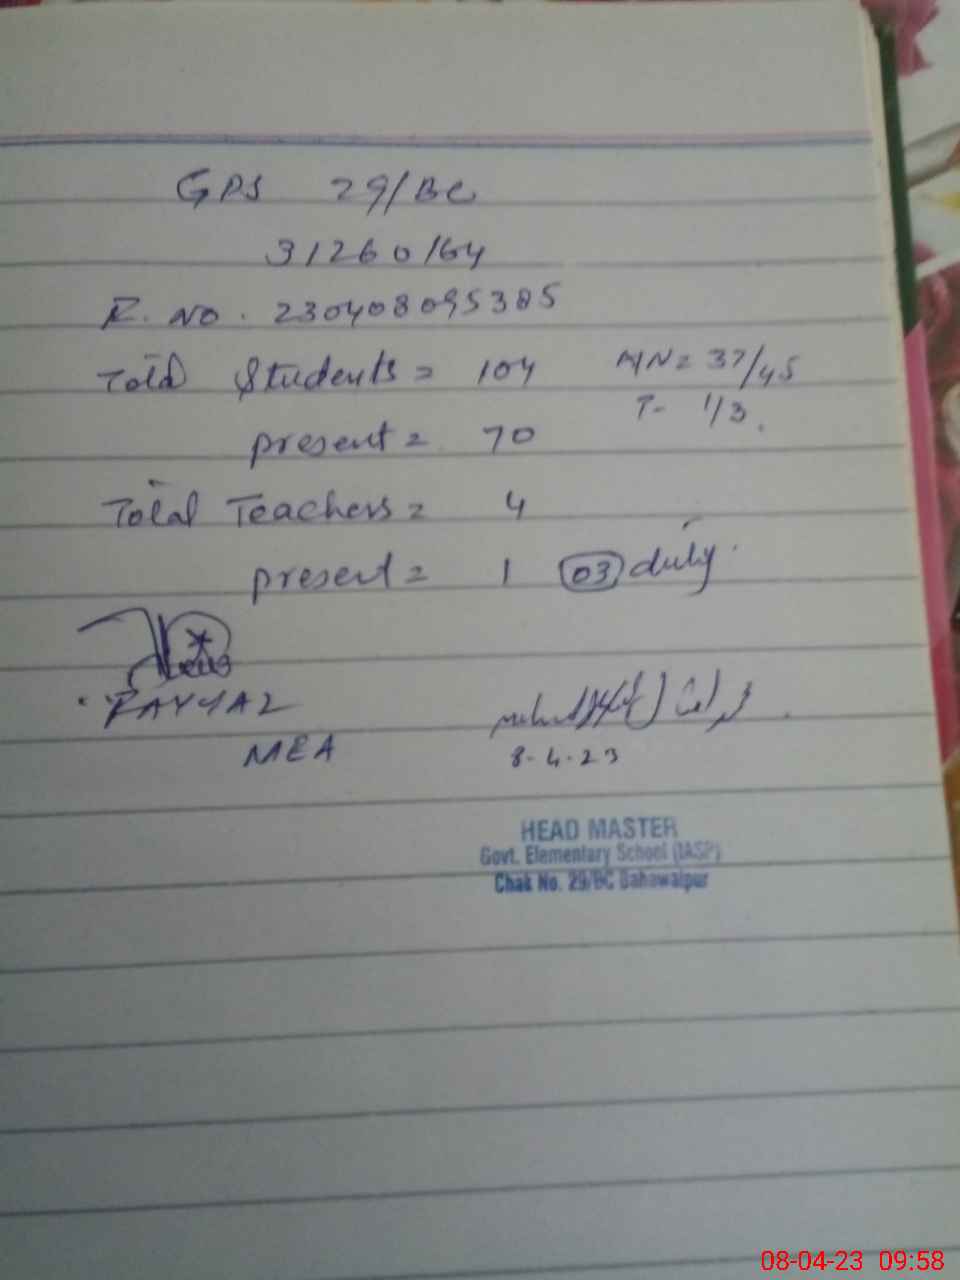 GPS 29/BC
31260164
R. NO. 230408095385
Total Students = 104
M/N = 37/45
T- 1/3.
present = 70
Total Teachers = 4
present = 1 03 duty.
MEA
8-4-23
HEAD MASTER
Govt. Elementary School (IASP)
Chak No. 29/BC Bahawalpur
08-04-23 09:58